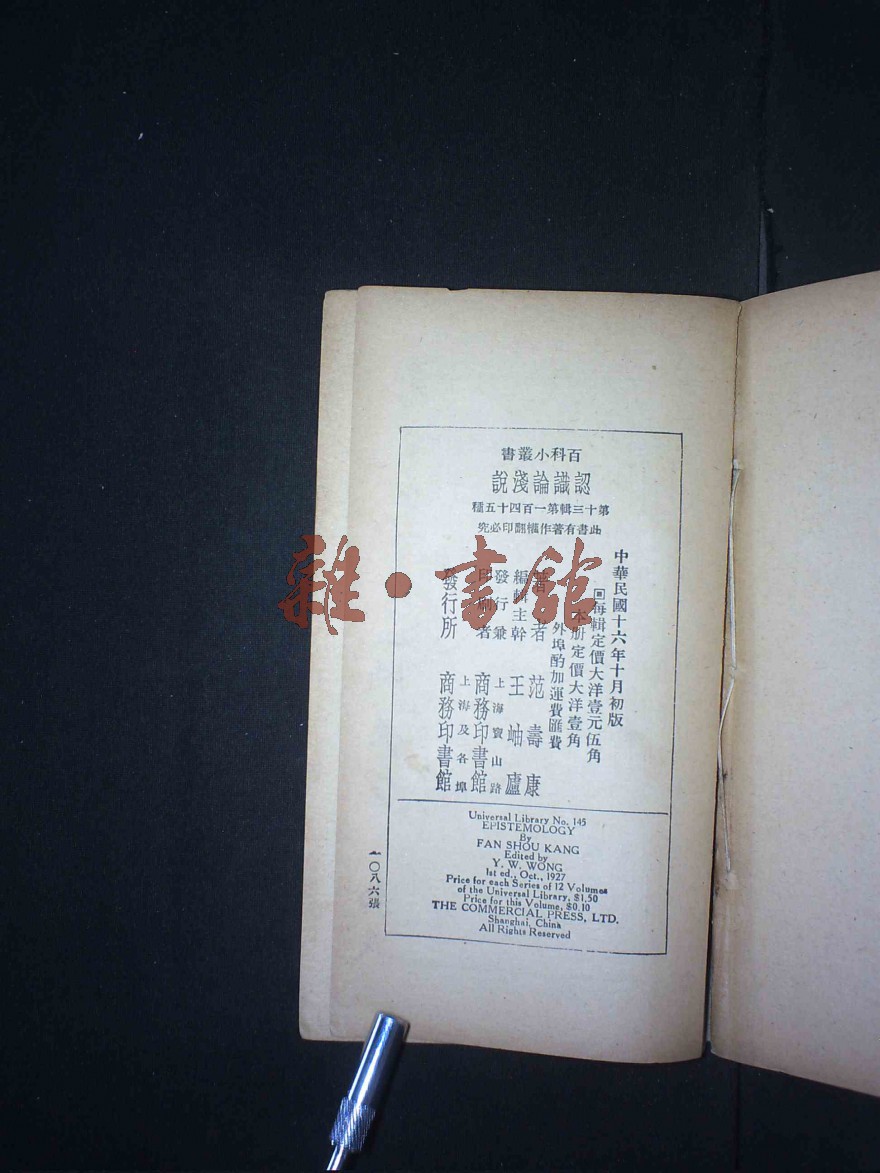 百科小叢書
認識論淺說
第十三輯第一百四十五種
此書有著作權翻印必究
中華民國十六年十月初版
每輯定價大洋壹元伍角
本册定價大洋壹角
外埠酌加運費匯費
著者 范壽康
編輯主幹 王岫廬
發行兼印刷者 上海寶山路 商務印書館
發行所 上海及各埠 商務印書館
Universal Library No. 145
EPISTEMOLOGY
By
FAN SHOU KANG
Edited by
Y. W. WONG
1st ed., Oct., 1927
Price for each Series of 12 Volumes
of the Universal Library, $1.50
Price for this Volume, $0.10
THE COMMERCIAL PRESS, LTD.
Shanghai, China
All Rights Reserved
一〇八六張
雜·書館